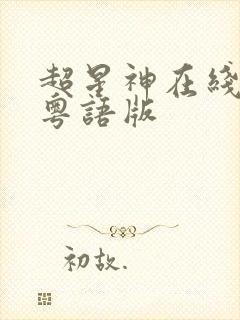 超星神在綫
粵語版
初故.